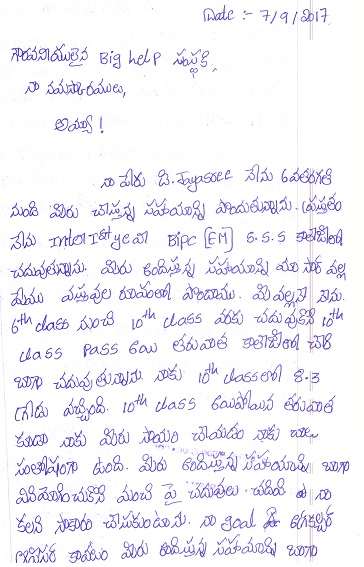 Date :- 7/9/2017
గౌరవనీయులైన Big help సంస్థకి,
నా నమస్కారములు,
అమ్మా !
నా పేరు డి. Jayasree నేను 6వతరగతి
నుండి మీరు చేస్తున్న సహాయాన్ని పొందుతున్నాను. ప్రస్తుతం
నేను Inter 1st year BiPC [EM] S.S.S కాలేజీలో
చదువుతున్నాను. మీరు అందిస్తున్న సహాయాన్ని మా సార్ వల్ల
మేము వస్తువుల రూపంలో పొందాము. మీ వల్లనే నేను
6th class నుంచి 10th class వరకు చదువుకొని 10th
class pass అయి తరువాత కాలేజీలో చేరి
బాగా చదువుతున్నాను. నాకు 10th class లో 8.3
గ్రేడు వచ్చింది. 10th class అయిపోయిన తరువాత
కూడా నాకు మీరు సాయం చేయడం నాకు చాలా
సంతోషంగా ఉంది. మీరు అందిస్తున్న సహాయాన్ని బాగా
వినియోగించుకొని మంచి పై చదువులు చదివి నా
కలని సాకారం చేసుకుంటాను. నా goal అగ్రికల్చర్
ఆఫీసర్ కావటం మీరు అందిస్తున్న సహాయాన్ని బాగా